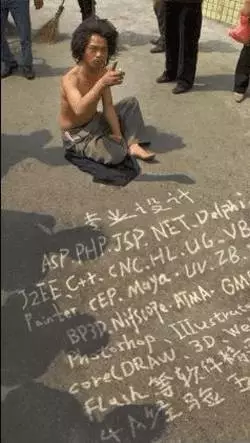 专业设计
ASP.PHP.JSP.NET.Delphi
J2EE.C++.CNC.HL.UG.VB
Painter.CEP.Maya.UV.ZB.
BP3D.
Photoshop、Illustrat
corelDRAW、3D
Flash 等软件
4A